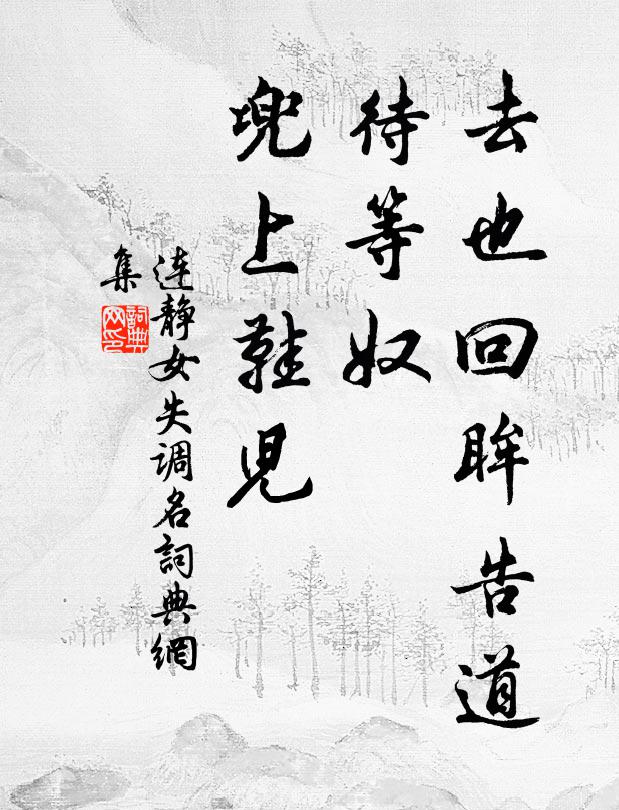 去也回眸告道
待等奴
兜上鞋兒
连静女失调名詞典網
集
詞典网印